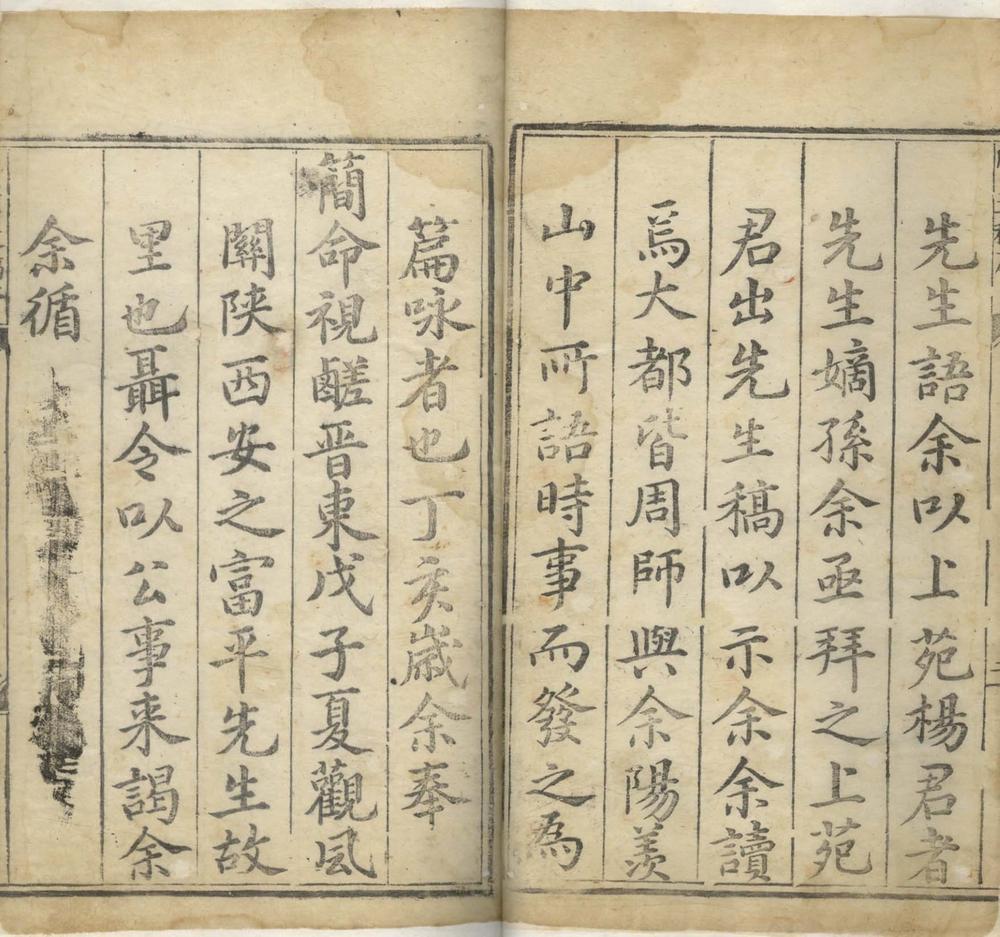 先生語余以上苑楊君者
先生嫡孫余亟拜之上苑
君出先生稿以示余余讀
焉大都皆周師與余陽羨
山中所語時事而發之為
篇咏者也丁亥歲余奉
簡命視鹺晉東戊子夏觀風
關陝西安之富平先生故
里也聶令以公事来謁余
余循